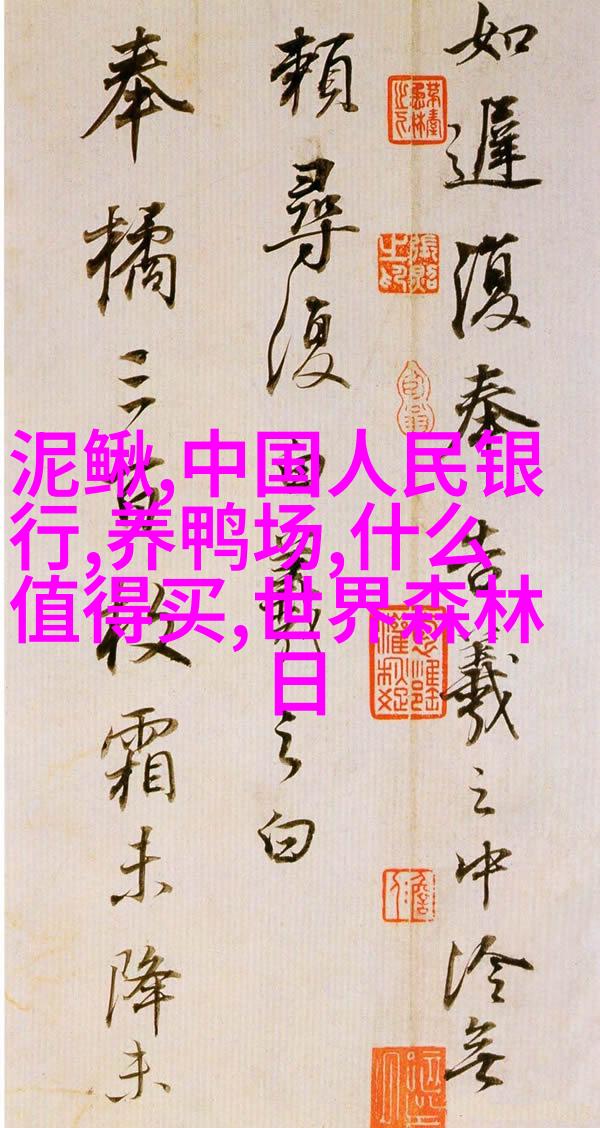 泥鳅,中国人民银
行,养鸭场,什么
值得买,世界森林
日
如遲復奉告羲之中冷無
賴尋復白羲之白
奉橘三百枚霜未降未